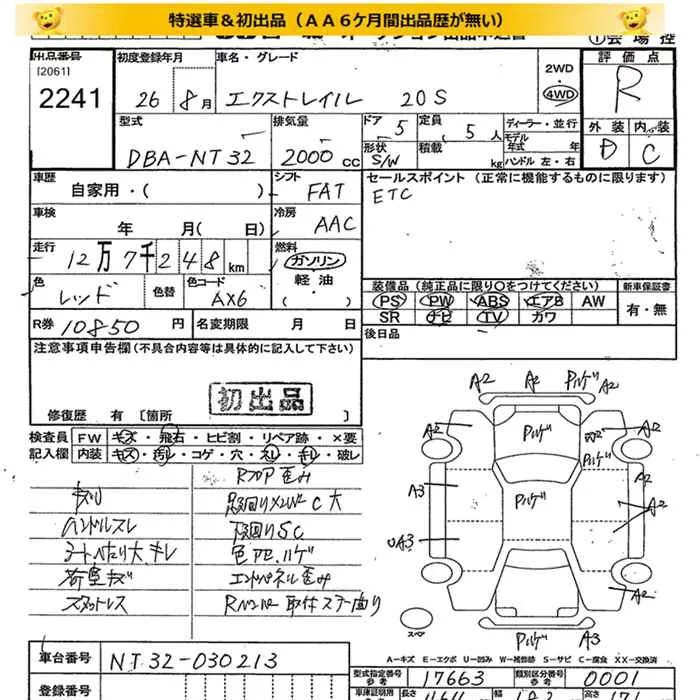 特選車&初出品(AA6ケ月間出品歴が無い)
出品番号
[2061]
2241
初度登録年月
26 年 8 月
車名・グレード
エクストレイル 20S
2WD
・
4WD
評価点
R
外装 内装
D C
型式
DBA-NT32
排気量
2000 cc
ドア
5
定員
5 人
形状
S/W
積載
kg
ディーラー・並行
モデル
年式 年
ハンドル 左・右
車歴
自家用・( )
シフト
FAT
セールスポイント (正常に機能するものに限ります)
ETC
車検
年 月( 日)
冷房
AAC
走行
12万7千248 km
燃料
ガソリン
軽油
・( )
色
レッド
色替
色コード
AX6
装備品(純正品に限り○をつけてください)
PS PW ABS エアB AW
SR ナビ TV カワ
新車保証書
有・無
R券 10850 円
名変期限 月 日
後日品
注意事項申告欄(不具合内容等は具体的に記入して下さい)
初出品
修復歴 有 [箇所 ]
検査員
記入欄
FW キズ・飛石・ヒビ割・リペア跡・×要
内装 キズ・汚レ・コゲ・穴・スレ・キレ・破レ
Rフロア歪み
キズ
下回りメンバーC大
ハンドルスレ
下回りSC
シートへたり大 キレ
荷室キズ
エンドパネル歪み
スタットレス
A2
A2
A2
A2
A2
A3
UA3
A2
A2
A3
スペア
A-キズ E-エクボ U-凹み W-補修跡 S-サビ C-腐食 XX-交換済
車台番号
NT32-030213
登録番号
型式指定番号
参考
17663
類別区分番号
参考
0001
車庫証明用
長さ
幅
高さ